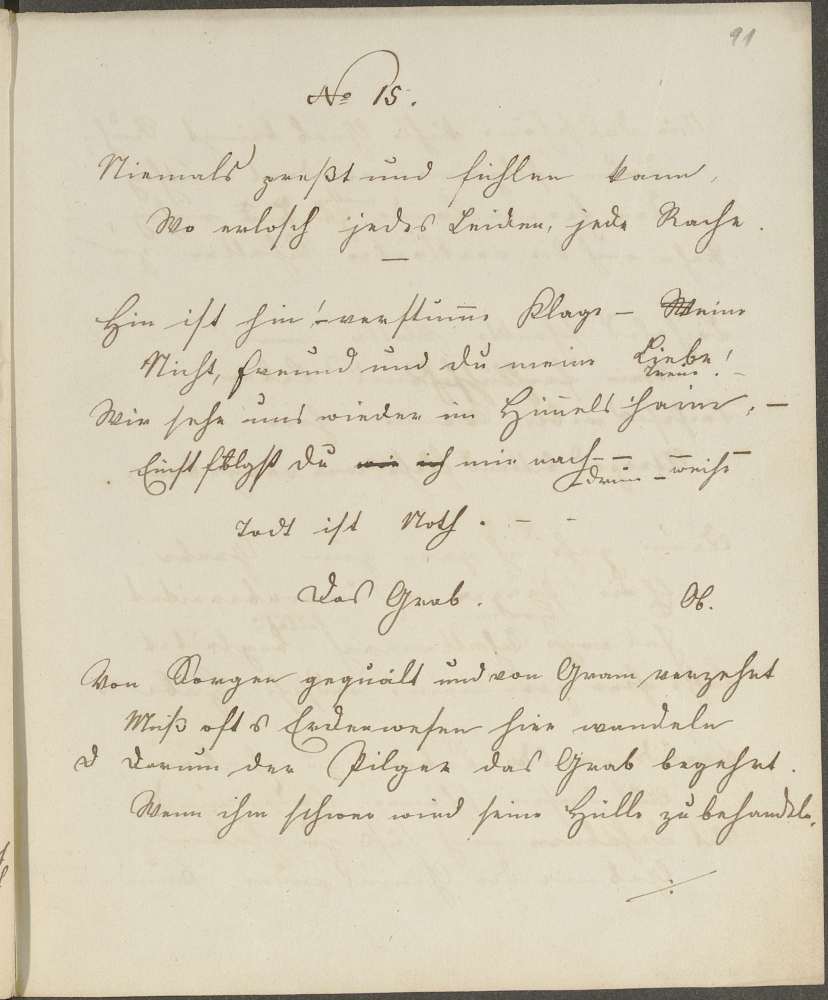 91
No 15.
Niemals preßt und fühlen kann,
Wo erlosch jedes Leiden, jede Rache.
Hin ist hin! – verstumme Klage – Weine
Nicht, Freund und du meine Liebe!
Treue! –
Wir sehn uns wieder im Himmels haine, –
Einst folgst du wie ich mir nach – –
– drum – weihe
Todt ist Noth. – –
Das Grab. Ob.
Von Sorgen gequält und von Gram verzehrt
Muß oft s Erdenwesen hier wandeln
D Darum der Pilger das Grab begehrt.
Wenn ihm schwer wird seine Hülle zu behandeln.